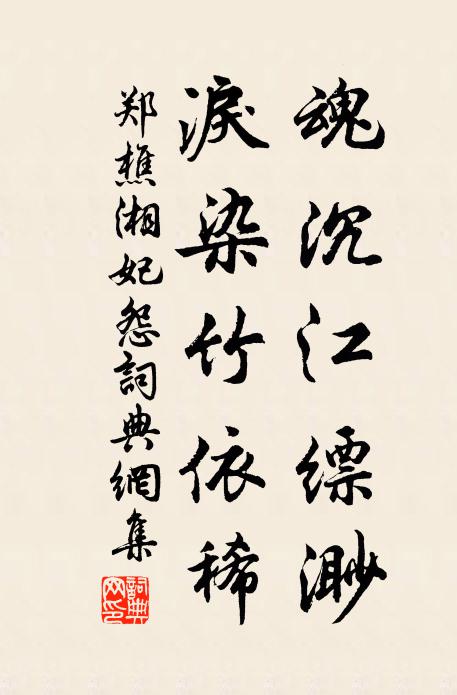 魂沉江缥渺
淚染竹依稀
郑樵湘妃怨詞典網集
詞典网印